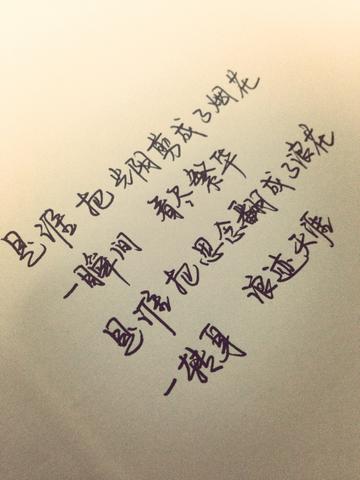 悬崖 把光阴剪成了烟花
一瞬间 看尽繁华
悬崖 把思念翻成了浪花
一转身 浪迹天涯